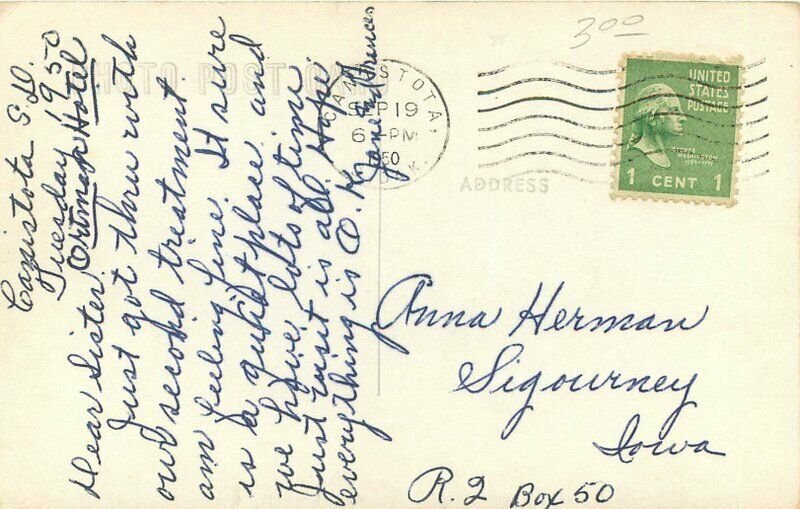 3.00
PHOTO POST CARD
Canistota S.D.
Tuesday 1950
Ortman Hotel
Dear Sister.
Just got thru with
our second treatment.
am feeling fine. It sure
is a quiet place and
we have lots of time
Just rest is all Hope
everything is O.K.
Jane and Frences
CANISTOTA
SEP 19
6 - PM
1950
S. DAK.
UNITED
STATES
POSTAGE
GEORGE
WASHINGTON
1 CENT 1
ADDRESS
Anna Herman
Sigourney
Iowa
R.2 Box 50